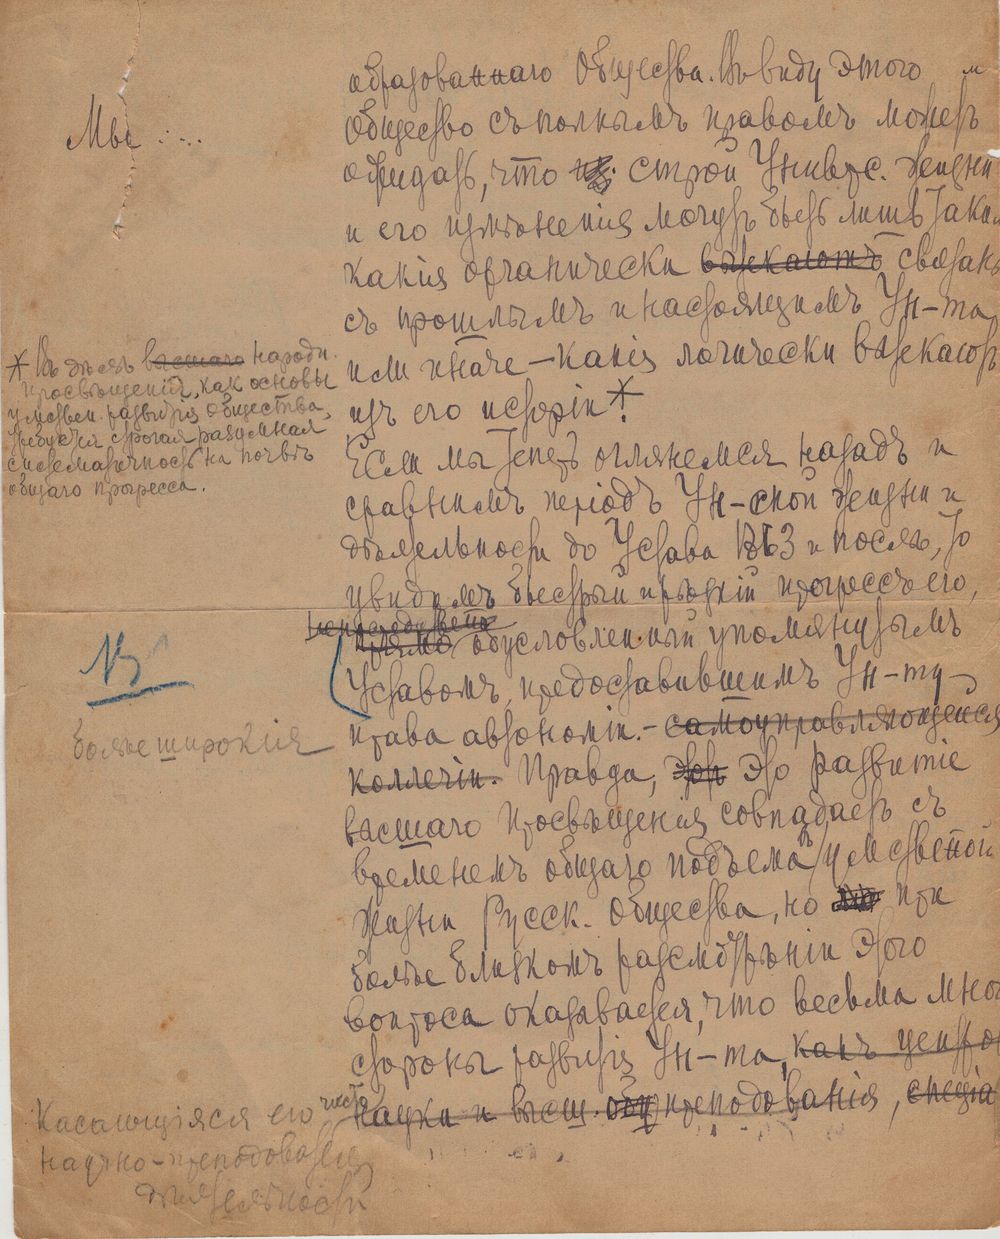 образованнаго Общества. Въ виду этого
Общество съ полнымъ правомъ можетъ
ожидать, что строй Универс. жизни
и его измѣненія могутъ быть лишь такія
какія органически вытекаютъ связаны
съ прошлымъ и настоящимъ Ун-та,
или иначе – какія логически вытекаютъ
изъ его исторіи*.
Если мы теперь оглянемся назадъ и
сравнимъ періодъ Ун-ской жизни и
дѣятельности до Устава 1863 и послѣ, то
увидимъ быстрый и рѣзкій прогрессъ его,
непосредственно
прямо обусловленный упомянутымъ
Уставомъ, предоставившимъ Ун-ту
права автономіи. – самоуправляющейся
коллегіи. Правда, это развитіе
высшаго просвѣщенія совпадаетъ съ
временемъ общаго подъема въ умственой
жизни Русск. Общества, но при
болѣе близкомъ разсмотрѣніи этого
вопроса оказывается, что весьма мног
стороны развитія Ун-та, какъ центра
науки и высш. преподованія, спеціа
Мы :...
* Въ дѣлѣ высшаго народн.
просвѣщенія, какъ основы
умствен. развитія общества,
требуется строгая разумная
систематичность на почвѣ
общаго прогресса.
болѣе широкія
Касающіяся его чисто
научно-преподоват
дѣятельности